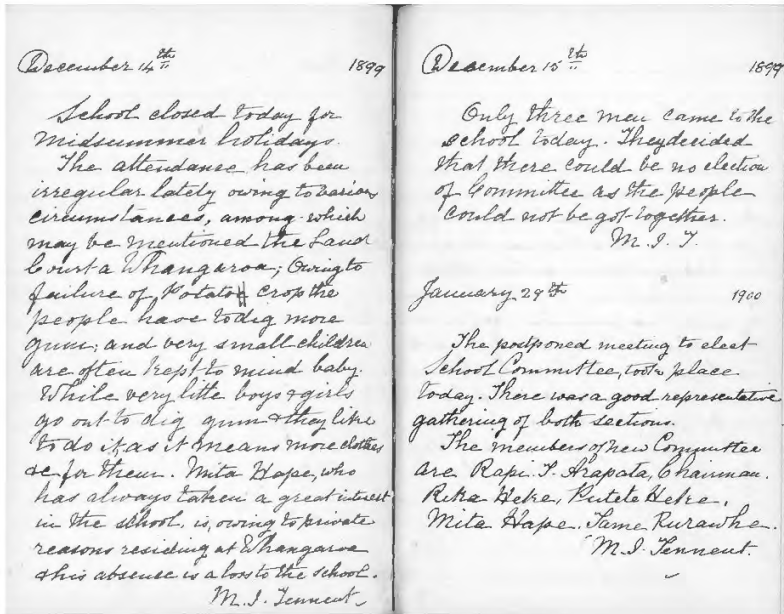 December 14th 1899
School closed today for
Midsummer holidays.
The attendance has been
irregular lately owing to various
circumstances, among which
may be mentioned the Land
Court a Whangaroa; Owing to
failure of Potato crop the
people have to dig more
gum; and very small children
are often kept to mind baby.
While very little boys & girls
go out to dig gum & they like
to do it, as it means more clothes
&c for them. Mita Hape, who
has always taken a great interest
in the school, is, owing to private
reasons residing at Whangaroa
& his absence is a loss to the school.
M. I. Tennent
December 15th 1899
Only three men came to the
school today. They decided
that there could be no election
of Committee as the people
could not be got together.
M. I. T.
January 29th 1900
The postponed meeting to elect
School Committee, took place
today. There was a good representative
gathering of both sections.
The members of new Committee
are Rapi. T. Arapata, Chairman.
Reka Heke, Putete Heke,
Mita Hape. Tame Rurawhe.
M. I. Tennent.